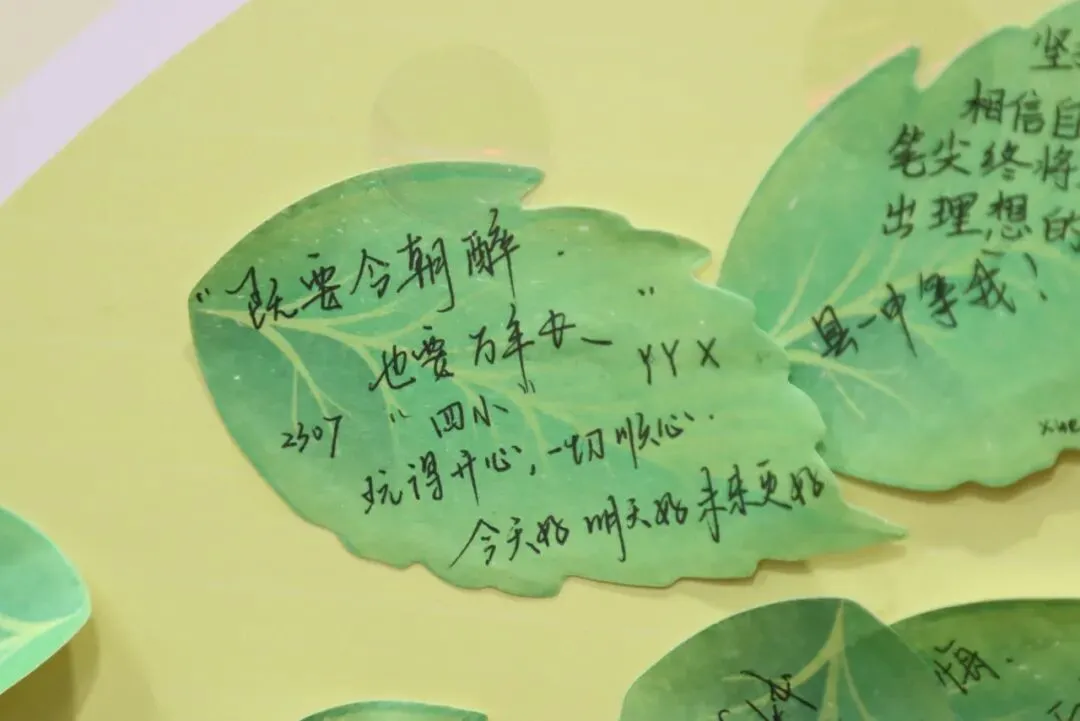 "既要今朝醉.
也要万年安"
YYX
2307 "四小"
玩得开心,一切顺心.
今天好 明天好 未来更好
坚
相信自
笔尖终将
出理想的
县一中等我!
xue
悔.